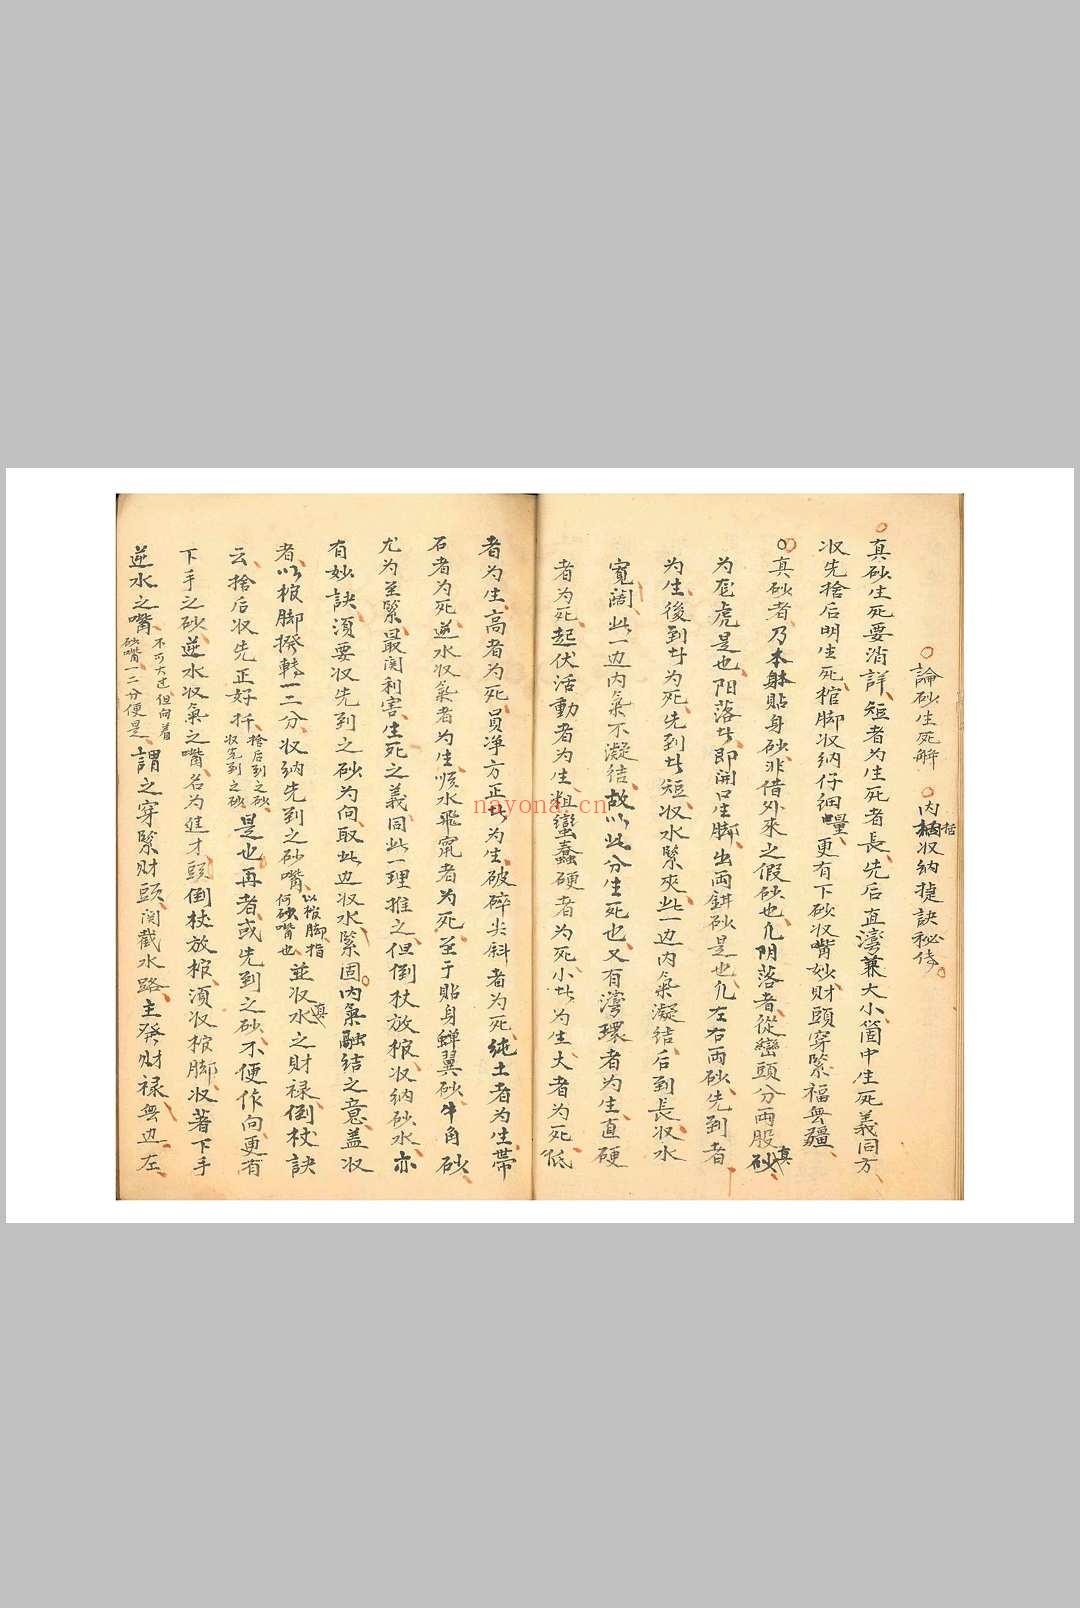 ○論砂生死解　○内栝收納捷訣秘傳
○真砂生死要消詳短者为生死者長先后直灣兼大小箇中生死義同方
收先捨后明生死棺脚收納仔細量更有下砂收嘴妙財頭穿緊福無疆
○真砂者乃本躰貼身砂非借外來之假砂也凡阴落者從巒頭分両股真砂
为龙虎是也阳落者即開口生脚出両鉗砂是也凡左右両砂先到者
为生後到者为死先到者短收水緊夾此一边内氣凝結后到長收水
寬闊此一边内氣不凝結故以此分生死也又有灣環者为生直硬
者为死起伏活動者为生粗蠻蠢硬者为死小者为生大者为死低
者为生高者为死員净方正者为生破碎尖斜者为死純土者为生帶
石者为死逆水收氣者为生順水飛竄者为死至于貼身蟬翼砂牛角砂
尤为至緊最関利害生死之義同此一理推之但倒杖放棺收納砂水亦
有妙訣須要收先到之砂为向取此边收水緊固内氣融結之意盖收
者以棺脚撥轉一二分收納先到之砂嘴以棺脚指何砂嘴也並收真水之財禄倒杖訣
云捨后收先正好扦捨后到之砂收先到之砂是也再者或先到之砂不便作向更有
下手之砂逆水收氣之嘴名为進才頭倒杖放棺須收棺脚收著下手
逆水之嘴不可太过但向着砂嘴一二分便是謂之穿緊財頭関截水路主發財禄無边左
nayona.cn